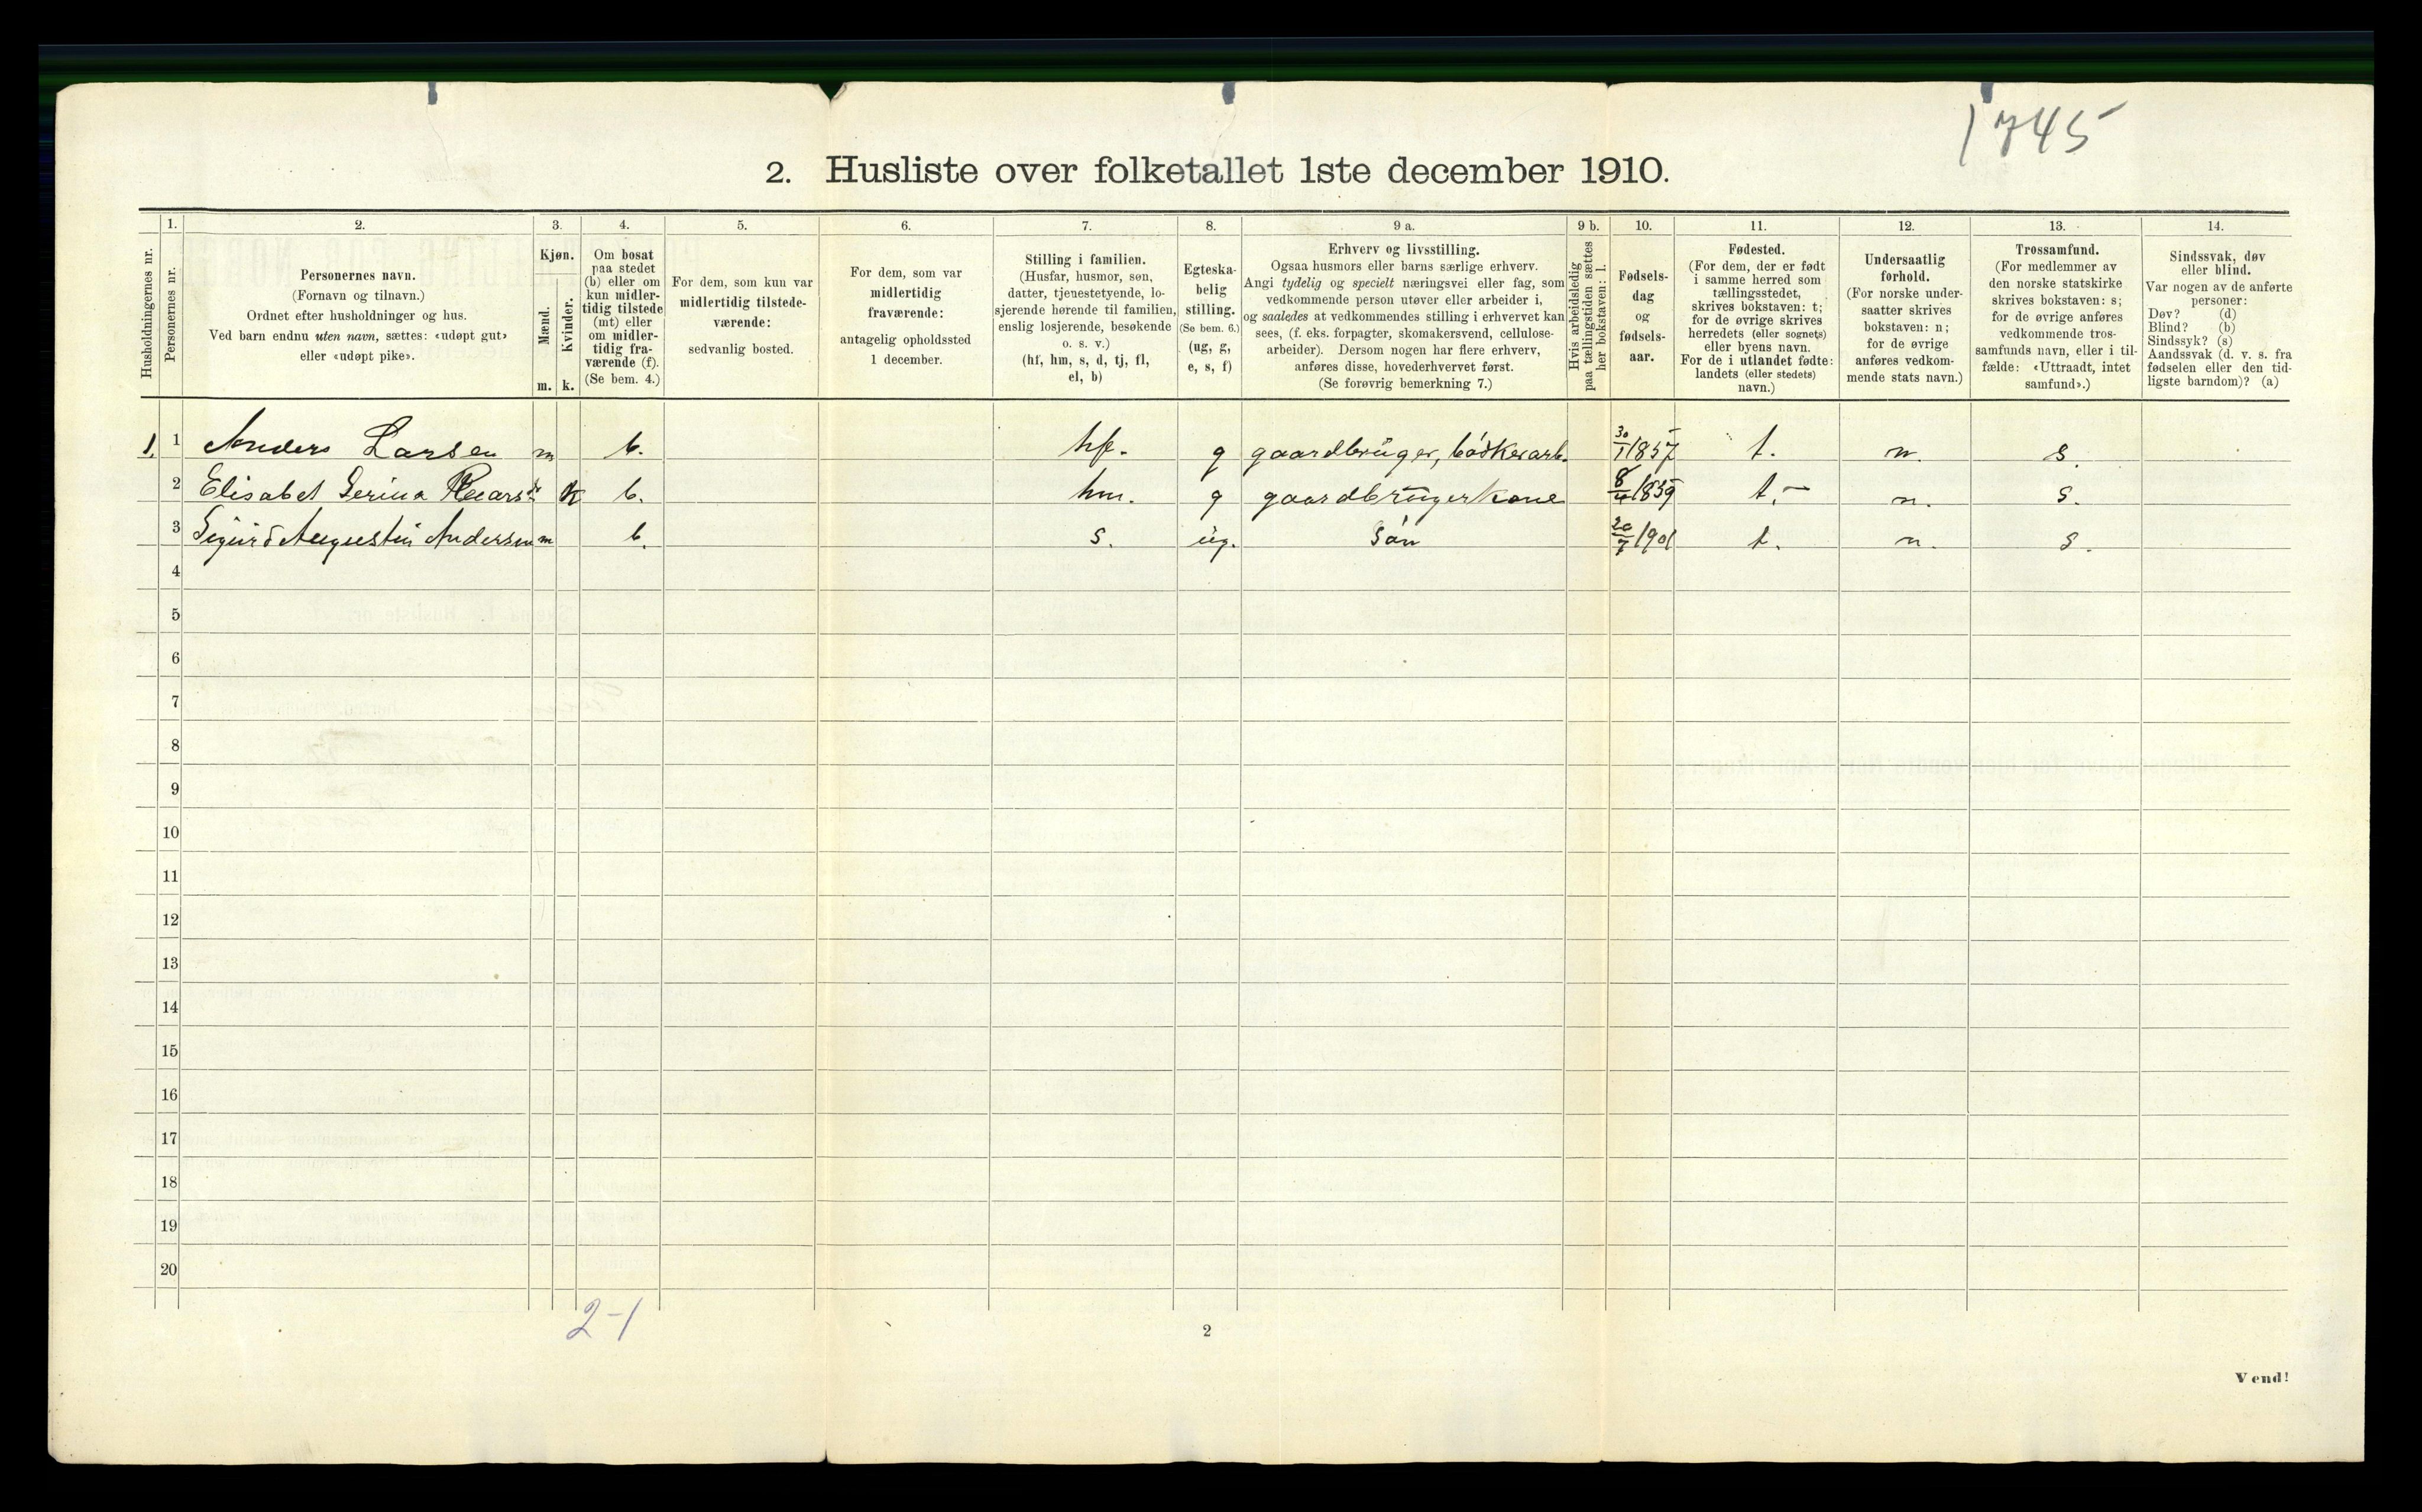 1745
2. Husliste over folketallet 1ste december 1910.
Husholdningernes nr.
1.
Personernes nr.
2.
Personernes navn.
(Fornavn og tilnavn.)
Ordnet efter husholdninger og hus.
Ved barn endnu uten navn, sættes: «udøpt gut»
eller «udøpt pike».
3.
Kjøn.
Mænd.
Kvinder.
m. k.
4.
Om bosat
paa stedet
(b) eller om
kun midler-
tidig tilstede
(mt) eller
om midler-
tidig fra-
værende (f).
(Se bem. 4.)
5.
For dem, som kun var
midlertidig tilstede-
værende:
sedvanlig bosted.
6.
For dem, som var
midlertidig
fraværende:
antagelig opholdssted
1 december.
7.
Stilling i familien.
(Husfar, husmor, søn,
datter, tjenestetyende, lo-
sjerende hørende til familien,
enslig losjerende, besøkende
o. s. v.)
(hf, hm, s, d, tj, fl,
el, b)
8.
Egteska-
belig
stilling.
(Se bem. 6.)
(ug, g,
e, s, f)
9 a.
Erhverv og livsstilling.
Ogsaa husmors eller barns særlige erhverv.
Angi tydelig og specielt næringsvei eller fag, som
vedkommende person utøver eller arbeider i,
og saaledes at vedkommendes stilling i erhvervet kan
sees, (f. eks. forpagter, skomakersvend, cellulose-
arbeider). Dersom nogen har flere erhverv,
anføres disse, hovederhvervet først.
(Se forøvrig bemerkning 7.)
9 b.
Hvis arbeidsledig
paa tællingstiden sættes
her bokstaven: l.
10.
Fødsels-
dag
og
fødsels-
aar.
11.
Fødested.
(For dem, der er født
i samme herred som
tællingsstedet,
skrives bokstaven: t;
for de øvrige skrives
herredets (eller sognets)
eller byens navn.
For de i utlandet fødte:
landets (eller stedets)
navn.)
12.
Undersaatlig
forhold.
(For norske under-
saatter skrives
bokstaven: n;
for de øvrige
anføres vedkom-
mende stats navn.)
13.
Trossamfund.
(For medlemmer av
den norske statskirke
skrives bokstaven: s;
for de øvrige anføres
vedkommende tros-
samfunds navn, eller i til-
fælde: «Uttraadt, intet
samfund».)
14.
Sindssvak, døv
eller blind.
Var nogen av de anførte
personer:
Døv? (d)
Blind? (b)
Sindssyk? (s)
Aandssvak (d. v. s. fra
fødselen eller den tid-
ligste barndom)? (a)
1. 1 Anders Larsen m b. hf. g gaardbruger, bødkerarb. 30/1 1857 t. n. s.
2 Elisabet Serina k b. hm. g gaardbrugerkone 1859 t. n. s.
3 Sigurd Augustin Andersen m b. s. ug. Søn 20/7 1901 t. n. s.
4
5
6
7
8
9
10
11
12
13
14
15
16
17
18
19
20
2-1
2
Vend!